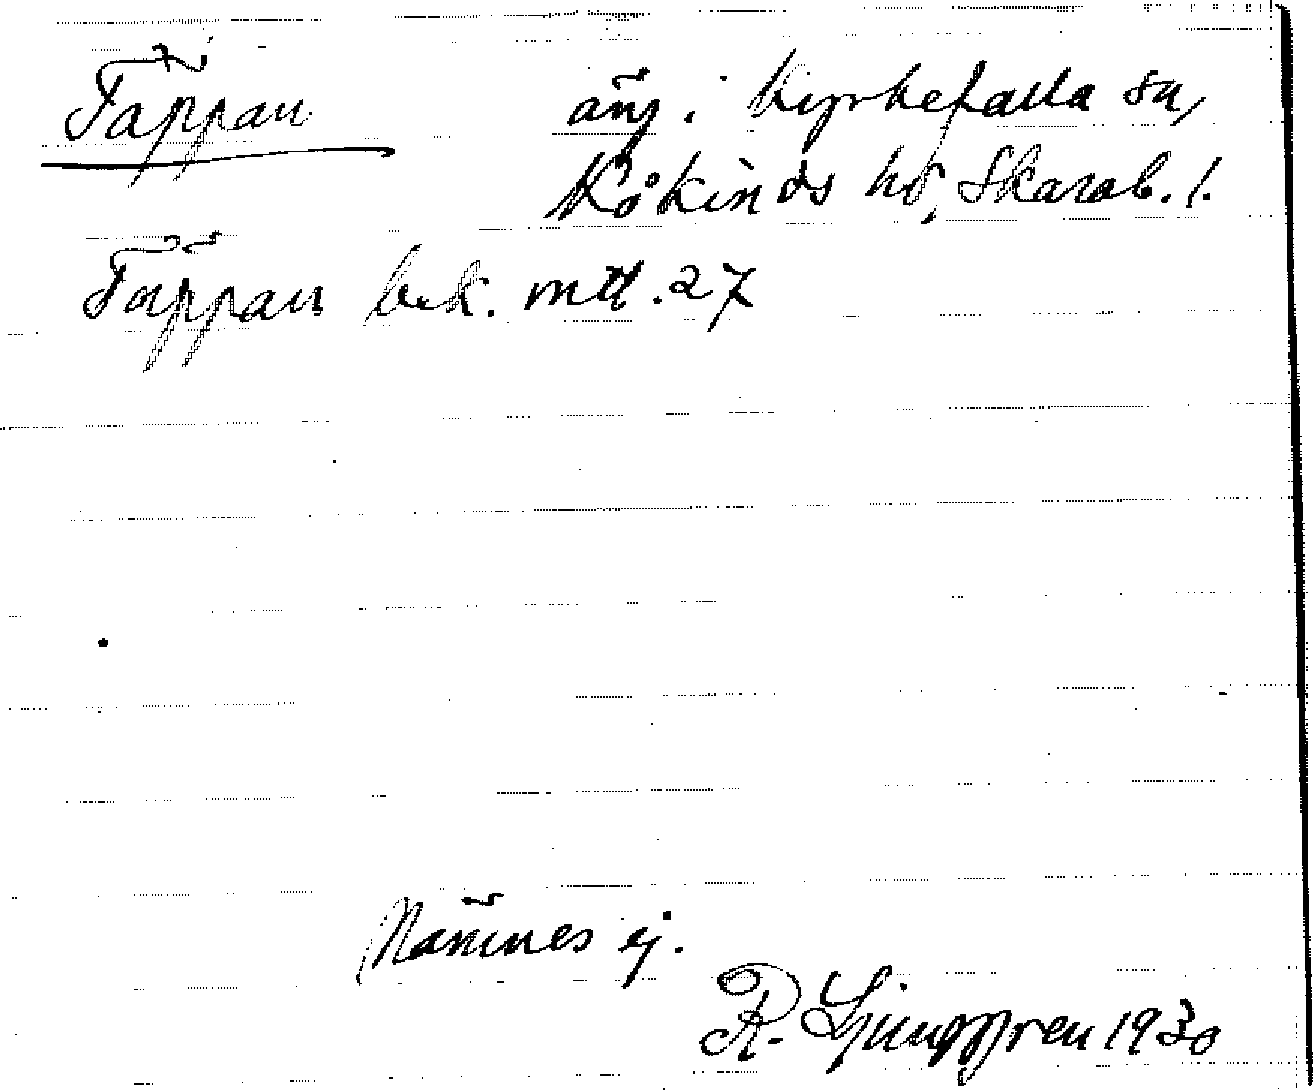 Täppan äng. Kyrkefalla sn,
Kåkinds hd, Skarab. l.
Täppan bek. mtl. 27
Nämnes ej.
R. Ljunggren 1930